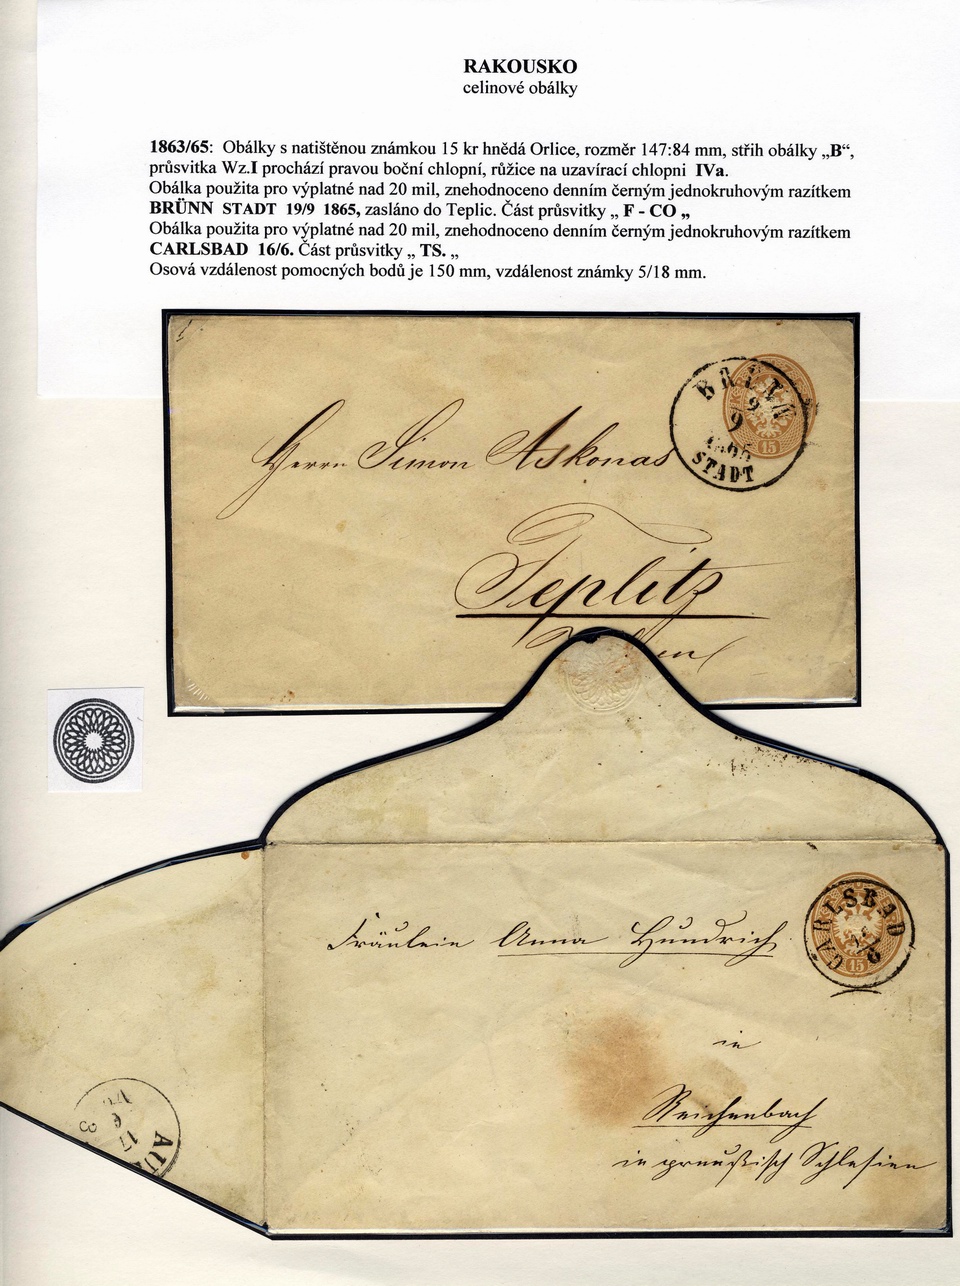 RAKOUSKO
celinové obálky
1863/65: Obálky s natištěnou známkou 15 kr hnědá Orlice, rozměr 147:84 mm, střih obálky „B“,
průsvitka Wz.I prochází pravou boční chlopní, růžice na uzavírací chlopni IVa.
Obálka použita pro výplatné nad 20 mil, znehodnoceno denním černým jednokruhovým razítkem
BRÜNN STADT 19/9 1865, zasláno do Teplic. Část průsvitky „ F - CO „
Obálka použita pro výplatné nad 20 mil, znehodnoceno denním černým jednokruhovým razítkem
CARLSBAD 16/6. Část průsvitky „ TS. „
Osová vzdálenost pomocných bodů je 150 mm, vzdálenost známky 5/18 mm.
BRÜNN
9
9
STADT
15
Herrn Simon Askonas
Teplitz
CARLSBAD
6
15
Fräulein Anna Hundrich
in
Reichenbach
in preußisch Schlesien
17
6
3